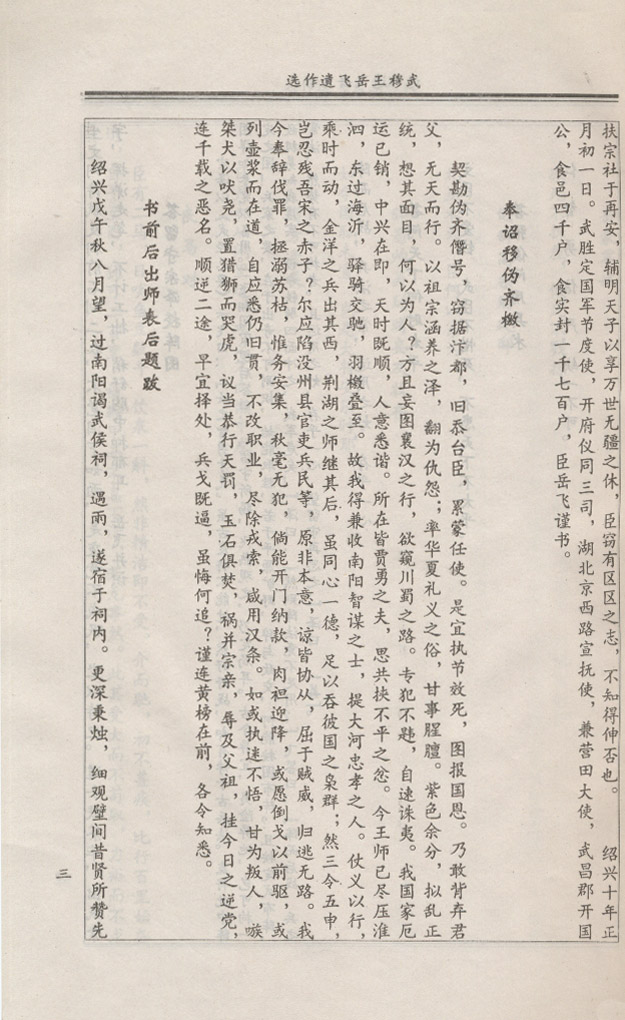 武穆王岳飞遗作选
扶宗社于再安，辅明天子以享万世无疆之休，臣窃有区区之志，不知得伸否也。　绍兴十年正
月初一日。武胜定国军节度使，开府仪同三司，湖北京西路宣抚使，兼营田大使，武昌郡开国
公，食邑四千户，食实封一千七百户，臣岳飞谨书。
奉诏移伪齐檄
契勘伪齐僭号，窃据汴都，旧忝台臣，累蒙任使。是宜执节效死，图报国恩。乃敢背弃君
父，无天而行。以祖宗涵养之泽，翻为仇怨；率华夏礼义之俗，甘事腥膻。紫色余分，拟乱正
统，想其面目，何以为人？方且妄图襄汉之行，欲窥川蜀之路。专犯不韪，自速诛夷。我国家厄
运已销，中兴在即，天时既顺，人意悉谐。所在皆贾勇之夫，思共挟不平之忿。今王师已尽压淮
泗，东过海沂，驿骑交驰，羽檄叠至。故我得兼收南阳智谋之士，提大河忠孝之人。仗义以行，
乘时而动，金洋之兵出其西，荆湖之师继其后，虽同心一德，足以吞彼国之枭群；然三令五申，
岂忍残吾宋之赤子？尔应陷没州县官吏兵民等，原非本意，谅皆协从，屈于贼威，归逃无路。我
今奉辞伐罪，拯溺苏枯，惟务安集，秋毫无犯，倘能开门纳款，肉袒迎降，或愿倒戈以前驱，或
列壶浆而在道，自应悉仍旧贯，不改职业，尽除戎索，咸用汉条。如或执迷不悟，甘为叛人，嗾
桀犬以吠尧，置猎狮而哭虎，议当恭行天罚，玉石俱焚，祸并宗亲，辱及父祖，挂今日之逆党，
连千载之恶名。顺逆二途，早宜择处，兵戈既逼，虽悔何追？谨连黄榜在前，各令知悉。
书前后出师表后题跋
绍兴戊午秋八月望，过南阳谒武侯祠，遇雨，遂宿于祠内。更深秉烛，细观壁间昔贤所赞先
三